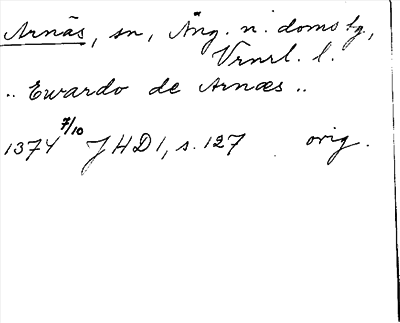 Arnäs, sn, Äng. n. doms tg,
Vrnrl. l.
.. Ewardo de Arnæs ..
1374 7/10 JHD1, s. 127 orig.